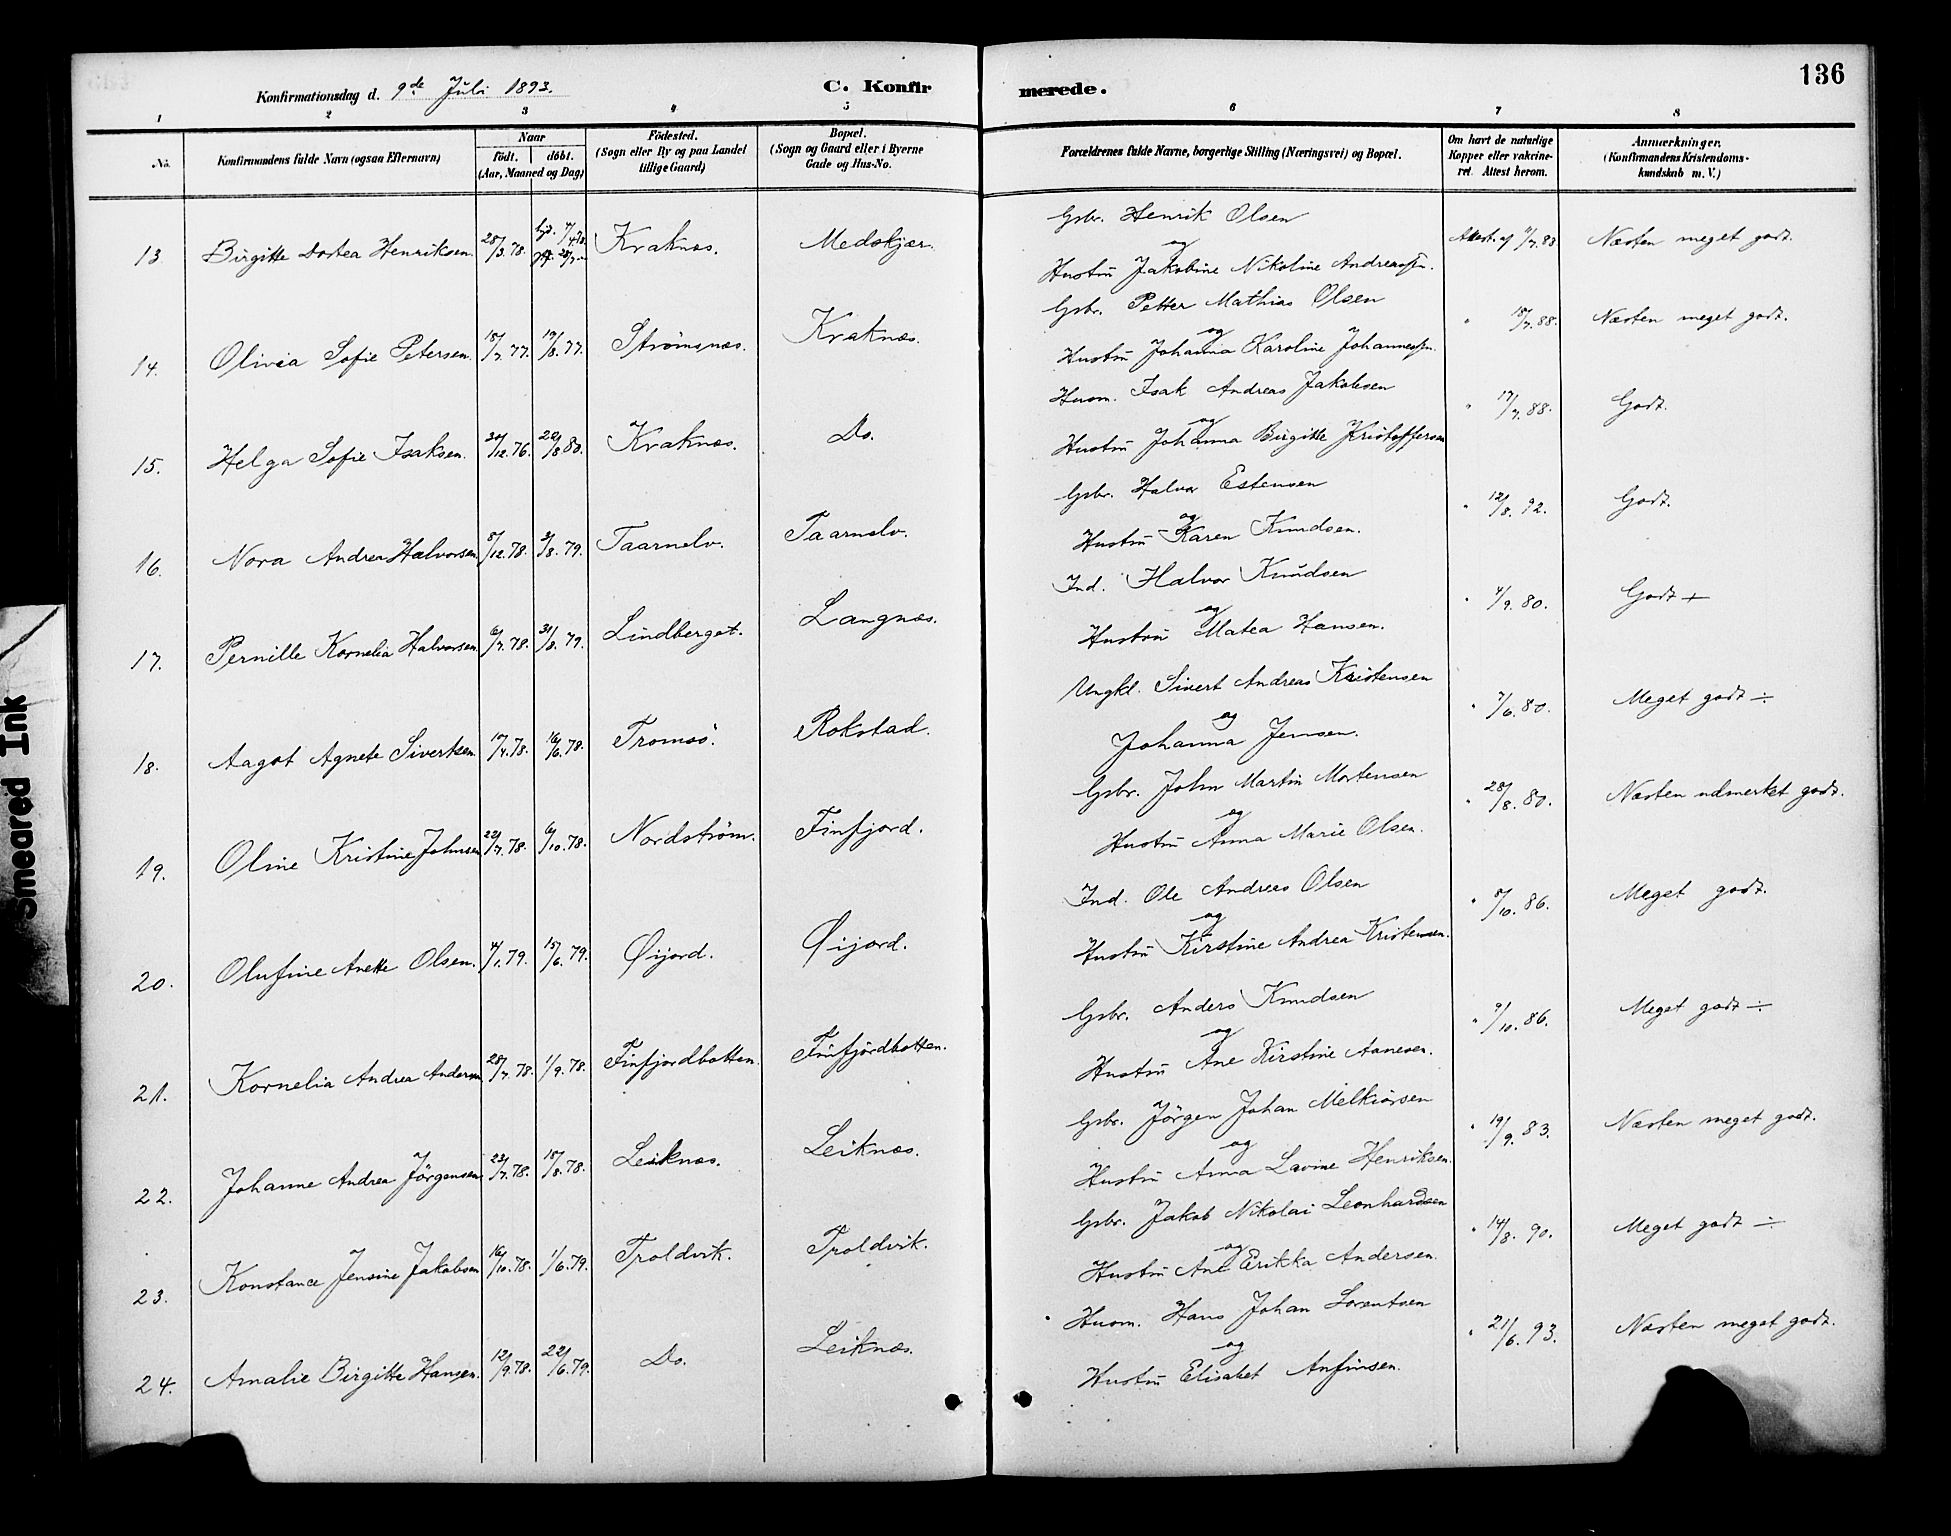 136
Konfirmationsdag d. 9de Juli 1893. C. Konfirmerede.
1 2 3 4 5 6 7 8
No. Konfirmandens fulde Navn (ogsaa Efternavn) Naar født. døbt. (Aar, Maaned og Dag) Födested. (Sogn eller By og paa Landet tillige Gaard) Bopæl. (Sogn og Gaard eller i Byerne Gade og Hus-No. Forældrenes fulde Navne, borgerlige Stilling (Næringsvei) og Bopæl. Om havt de naturlige Kopper eller vakcineret. Attest herom. Anmærkninger. (Konfirmandens Kristendomskundskab m. V.)
13. Birgitte Dortea Henriksen. 28/3.78. Kraknæs. Medskjær. Gsbr. Henrik Olsen og Hustru Jakobine Nikoline Andreassen. Attest af Næsten meget godt.
14. Olivia Sofie Petersen. 18/7.77. 19/8.77. Strømsnæs. Kraknæs. Gsbr. Petter Mathias Olsen og Hustru Johanna Karoline Johannessen. " 18/7.88. Næsten meget godt.
15. Helga Sofie Isaksen. 30/12.76. 22/8 80. Kraknæs. Do. Husm. Isak Andreas Jakobsen og Hustru Johanna Birgitte Kristoffersen " 17/7.88. Godt.
16. Nora Andrea Halvorsen 8/12.78. 3/8.79. Taarnelv. Taarnelv. Gsbr. Halvor Estensen og Hustru Karen Knudsen. " 12/8.92. Godt.
17. Pernille Kornelia Halvorsen 6/7.78. 31/8.79. Lindberget. Langnæs. Ind. Halvor Knudsen og Hustru Matea Hansen. " 4/9.80. Godt +
18. Aagot Agnete Sivertsen 10/4.78. 16/6.78. Tromsö. Rokstad. Ungkl. Sivert Andreas Kristensen og Johanna Jensen. " 7/6.80. Meget godt ÷
19. Oline Kristine Johnsen 22/7.78. 6/10.78. Nordstrøm. Finfjord. Gsbr. John Martin Mortensen og Hustru Anna Marie Olsen. " 28/8.80. Næsten udmerket godt.
20. Olufine Anette Olsen. 4/1.79. 15/6.79. Øijord. Øijord. Ind. Ole Andreas Olsen og Hustru Kirstine Andrea Kristensen. " 8/10.86. Meget godt.
21. Kornelia Andrea Andersen 28/7.78. 1/9.78. Finfjordbotten. Finfjordbotten. Gsbr. Anders Knudsen og Hustru Ane Kirstine Aanesen. " 9/10.86. Meget godt ÷
22. Johanne Andrea Jörgensen 23/7.78. 18/8.78. Leiknæs. Leiknæs. Gsbr. Jörgen Johan Melkiorsen og Hustru Anna Lavine Henriksen. " 19/9.83. Næsten meget godt.
23. Konstance Jensine Jakobsen 16/10.78. 1/6.79. Troldvik. Troldvik. Gsbr. Jakob Nikolai Leonhardsen og Hustru Ane Erikka Andersen. " 14/8.90. Meget godt ÷
24. Amalie Birgitte Hansen. 12/9.78. 22/6.79. Do. Leiknæs. Husm. Hans Johan Lorentsen og Hustru Elisabet Anfinsen. " 21/6.93. Næsten meget godt.
Smeared Ink